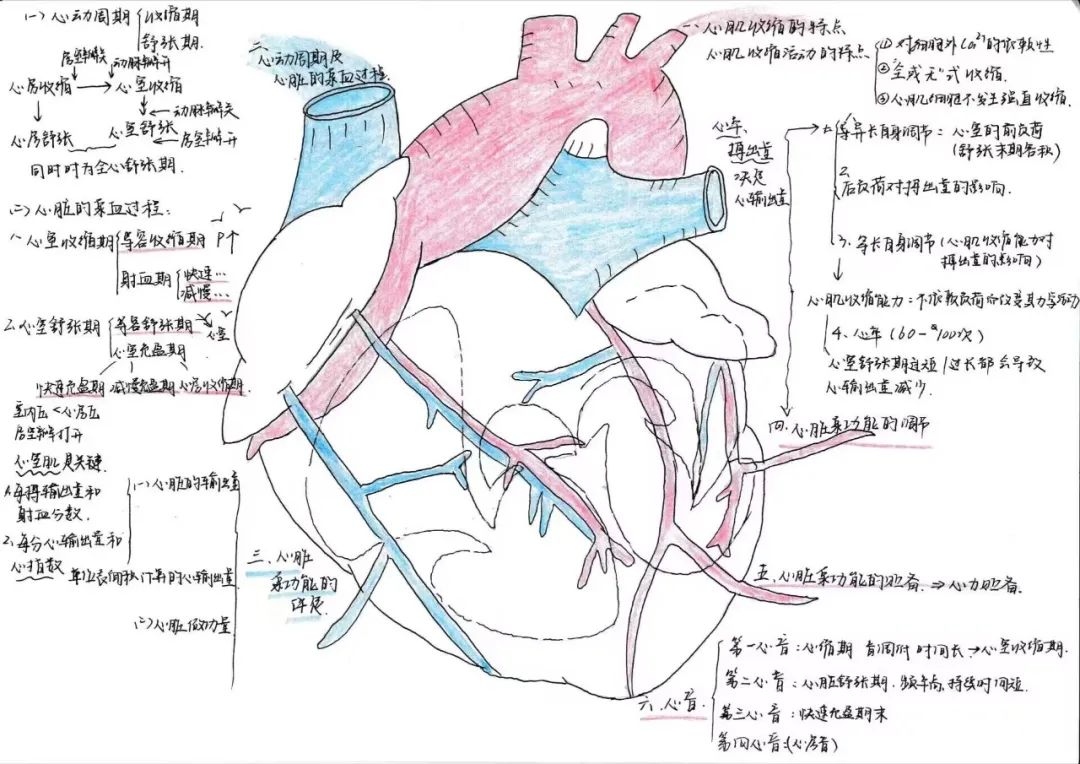 (一)心动周期 收缩期
舒张期.
房室瓣关 动脉瓣开
心房收缩 → 心室收缩
← 动脉瓣关
心房舒张 ← 心室舒张 ← 房室瓣开
同时时为全心舒张期.
(二)心脏的泵血过程:
1.心室收缩期 等容收缩期 P↑
射血期 快速…
减慢…
2.心室舒张期 等容舒张期 心室
心室充盈期
快速充盈期 减慢充盈期 心房收缩期.
室内压<心房压
房室瓣打开
心室肌是关键.
二.心动周期及
心脏的泵血过程.
一.心肌收缩的特点
心肌收缩活动的特点
①对细胞外Ca²⁺的依赖性
②"全或无"式收缩.
③心肌细胞不发生强直收缩.
心率、
搏出量
决定
心输出量
1.等异长自身调节: 心室的前负荷
(舒张末期容积)
2.
后负荷对搏出量的影响.
3.等长自身调节(心肌收缩能力对
搏出量的影响)
心肌收缩能力:不依赖负荷而改变其力学活动
4.心率(60-100次)
心室舒张期过短/过长都会导致
心输出量减少.
四.心脏泵功能的调节
(一)心脏的输出量
1.每搏输出量和
射血分数.
2.每分心输出量和
心指数 单位表面积计算的心输出量
(二)心脏做功量
三.心脏
泵功能的
评定.
五.心脏泵功能的贮备. ⇒心力贮备.
六.心音
第一心音:心缩期 音调低 时间长→心室收缩期.
第二心音:心脏舒张期.频率高,持续时间短.
第三心音:快速充盈期末
第四心音:(心房音)